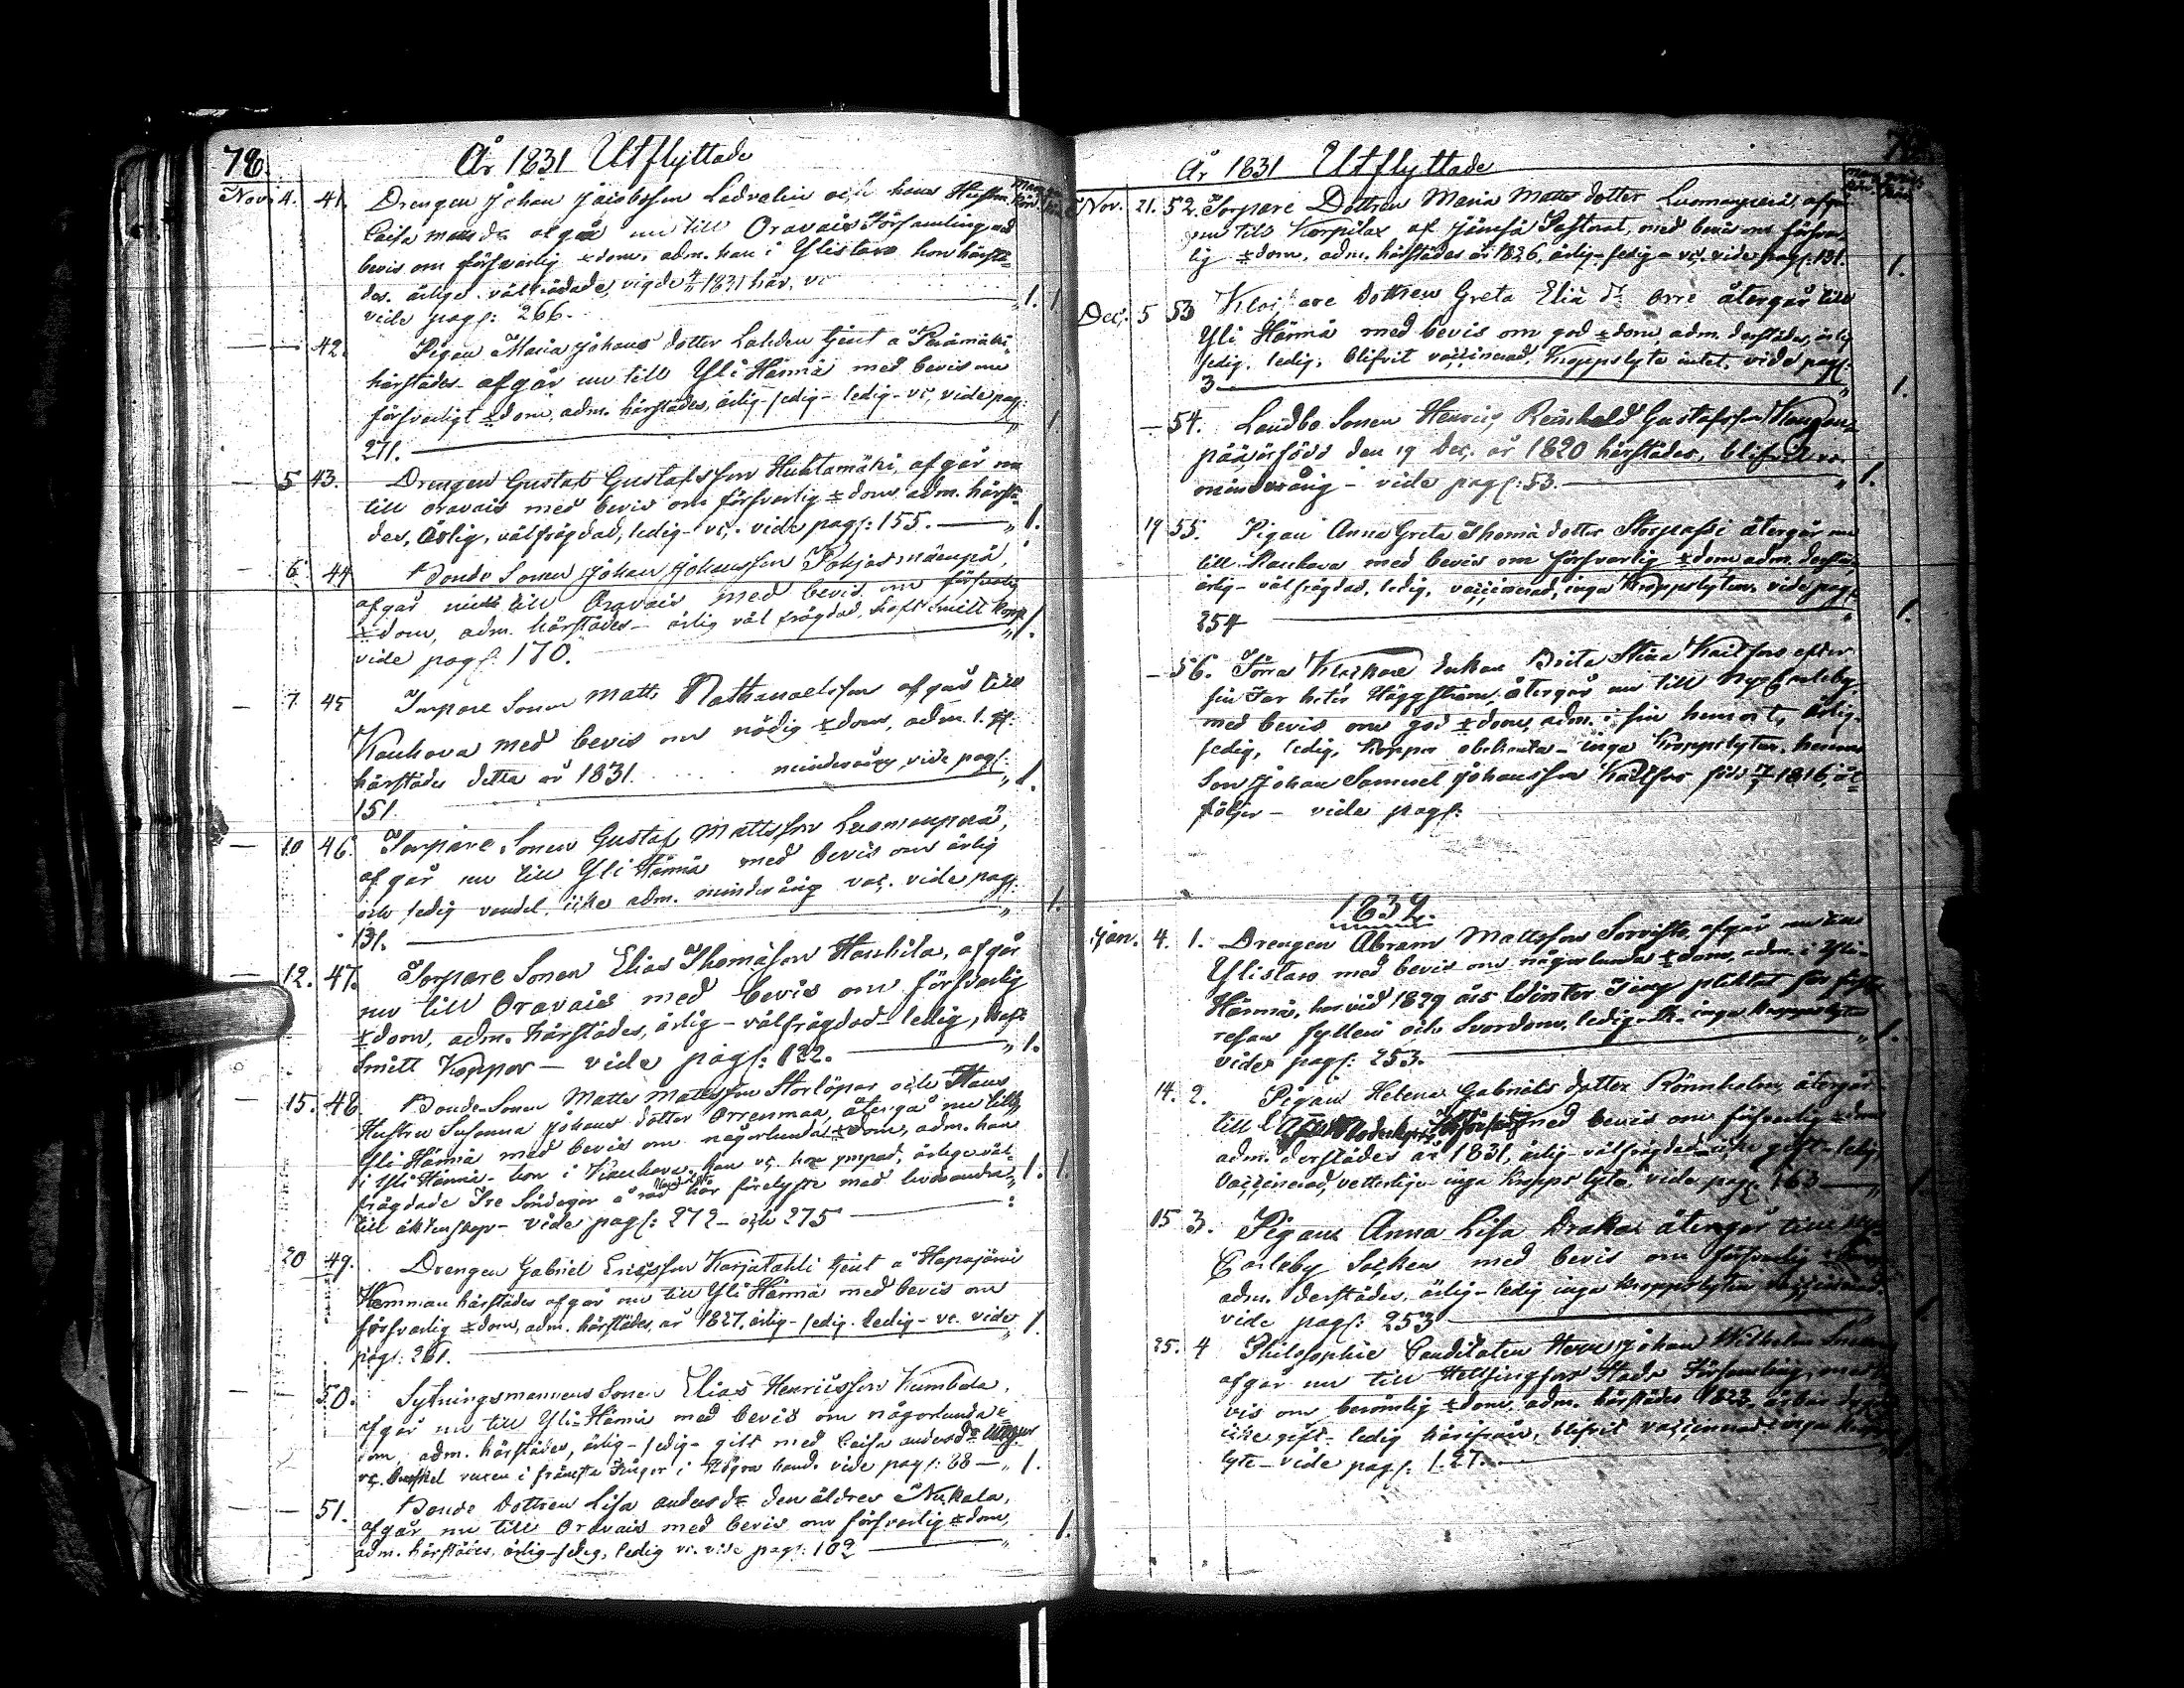 78.
År 1831 Utflyttade
Nov. 4. 41. Drengen Johan Jacobsson Ladvalin och hans Hustru
Caisa Matts dr afgå nu till Oravais Församling med
bevis om försvarlig xdom, adm. han i Ylistaro hon härstä-
des. ärlige. välfrägdade, vigde 1831 här, vc
vide pag: 266. 1. 1
42. Pigan Maria Johans dotter Lahden tjent å
härstädes afgår nu till Yli Härmä med bevis om
försvarligt xdom, adm. härstädes, ärlig - sedig - ledig - vc, vide pag:
271. 1
5 43. Drengen Gustaf Gustafsson Huhtamäki, afgår nu
till Oravais med bevis om försvarlig xdom adm. härstä-
des, Ärlig, välfrägdad, ledig - vc, vide pag: 155. 1.
6 44 Bonde Sonen Johan Johansson
afgår till Oravais med bevis om försvarlig
xdom, adm. härstädes - ärlig väl frägdad, haft Smitt kopp.
vide pag: 170. 1.
7 45 Torpare Sonen Matts Nathanaelsson afgår till
Kauhava med bevis om nödig xdom, adm. 1. g:
härstädes detta år 1831. minderårig vide pag:
151. 1.
10 46. Torpare Sonen Gustaf Mattsson Luomanperä,
afgår nu till Yli Härmä med bevis om ärlig
och sedig vandel. icke adm. minderårig vac. vide pag:
131. 1.
12. 47. Torpare Sonen Elias Thomasson Hauhila, afgår
nu till Oravais med bevis om försvarlig
xdom, adm. härstädes, ärlig - välfrägdad - ledig, haft
Smitt Koppor - vide pag: 122. 1.
15. 48 Bonde Sonen Matts Mattsson Storlöpar och Hans
Hustru Susanna Johans dotter Orrenmaa, återgå nu till
Yli Härmä med bevis om någorlunda xdom, adm. han
i Yli Härmä - hon i Kauhava, han vc. hon ympad, ärlige väl-
frägdade Tre Söndagar å rad här förelyste med hvarandra 1. 1.
till äktenskap - vide pag: 272 - och 275
20 49. Drengen Gabriel Ericsson Karjalahti tjent å Hapajärvi
Hemman härstädes afgår nu till Yli Härmä med bevis om
försvarlig xdom, adm. härstädes, år 1827, ärlig - sedig. ledig - vc. vide
pag: 261. 1.
50. Sytningsmannens Sonen Elias Henricsson Kumbala,
afgår nu till Yli-Härmä med bevis om någorlunda x
dom, adm. härstädes, ärlig - sedig - gift med Caisa anders dr
vc. vuxen i främsta finger i Högra hand. vide pag: 88 1.
51. Bonde Dottren Lisa anders dr den äldres Nukala,
afgår nu till Oravais med bevis om försvarlig xdom,
adm. härstädes, ärlig - sedig, ledig vc. vide pag: 102 1.
År 1831 Utflyttade
Nov. 21. 52. Torpare Dottren Maria Matts dotter Luomanperä, afgår
nu till Korpilax af Jämsä Pastorat, med bevis om försvar-
lig xdom, adm. härstädes år 1826, ärlig - sedig - vc, vide pag: 131. 1.
Dec. 5 53 Klockare Dottren Greta Elia dr Orre återgår till
Yli Härmä med bevis om god xdom, adm. derstädes, ärlig
sedig. ledig, blifvit vaccinerad, kroppslyte intet, vide pag:
3 1.
54. Landbo Sonen Henric Reinhold Gustafsson
är född den 19 Dec. år 1820 härstädes, blifvit vc.
minderårig - vide pag: 53. 1.
19 55. Pigan Anna Greta Thomä dotter återgår nu
till Kauhava med bevis om försvarlig xdom adm. derstä-
ärlig - välfrägdad, ledig, vaccinerad, inga kroppslyten, vide pag:
254 1.
56. Förra Klockare Enkan Brita Stina Kailfors efter
sin Far heter Häggström, återgår nu till Nycarleby
med bevis om god xdom, adm. i sin hemort, ärlig
sedig, ledig, koppor obekanta - inga kroppslyten. hennes
Son Johan Samuel Johansson Kailfors född 1816, åt-
följer - vide pag:
1832.
Jan. 4. 1. Drengen Abram Mattsson Sorvisto afgår nu till
Ylistaro med bevis om någorlunda xdom, adm. i Yli-
Härmä, har vid 1829 års Winter Ting pliktat för första
resan fylleri och Svordom, ledig - inga kroppslyte
vide pag: 253. 1.
14. 2. Pigan Helena Gabriels dotter Rönnholm, återgår
till med bevis om försvarlig xdom
adm. derstädes år 1831, ärlig - välfrägdad icke gift - ledig,
vaccinerad, vetterligen inga kropps lyte, vide pag: 163 1
15 3. Pigan Anna Lisa Draka återgår till Ny-
Carleby Socken med bevis om försvarlig xdom
adm. derstädes, ärlig - ledig inga kroppslyten vaccinerad.
vide pag: 253
25. 4 Philosophie Candidaten Herr Johan Wilhelm
afgår nu till Helsingfors Stads Församling, med be-
vis om berömlig xdom, adm. härstädes 1822,
icke gift - ledig härifrån, blifvit vaccinerad - inga kropps
lyte - vide pag: 127.